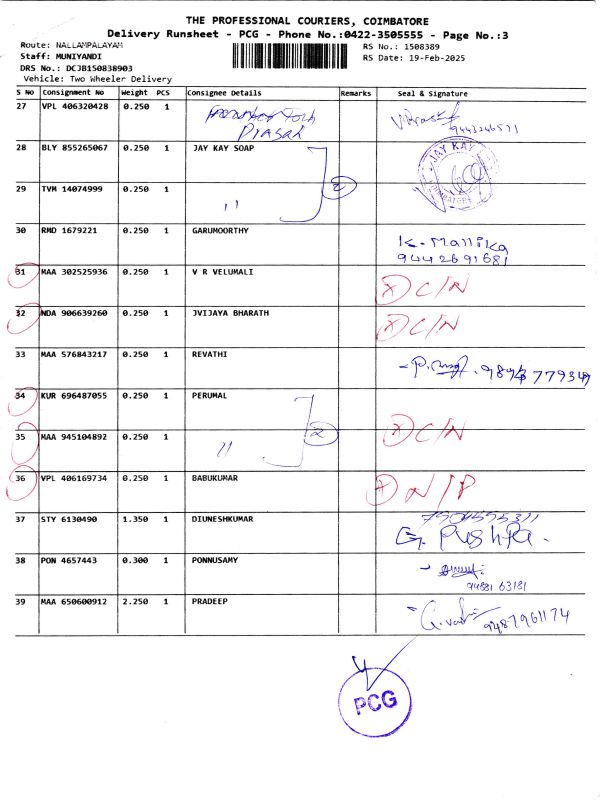 THE PROFESSIONAL COURIERS, COIMBATORE
Delivery Runsheet - PCG - Phone No.:0422-3505555 - Page No.:3
Route: NALLAMPALAYAM
RS No.: 1508389
Staff: MUNIYANDI
RS Date: 19-Feb-2025
DRS No.: DCJB150838903
Vehicle: Two Wheeler Delivery
S No Consignment No Weight PCS Consignee Details Remarks Seal & Signature
27 VPL 406320428 0.250 1
28 BLY 855265067 0.250 1 JAY KAY SOAP 2 JAY KAY COIMBATORE
29 TVM 14074999 0.250 1 "
30 RMD 1679221 0.250 1 GARUMOORTHY K. Mallika
9442691681
31 MAA 302525936 0.250 1 V R VELUMALI X C/N
32 NDA 906639260 0.250 1 JVIJAYA BHARATH X C/N
33 MAA 576843217 0.250 1 REVATHI
34 KUR 696487055 0.250 1 PERUMAL 2
35 MAA 945104892 0.250 1 " X C/N
36 VPL 406169734 0.250 1 BABUKUMAR X N/P
37 STY 6130490 1.350 1 DIUNESHKUMAR G. Pushpa.
38 PON 4657443 0.300 1 PONNUSAMY
94881 63181
39 MAA 650600912 2.250 1 PRADEEP
9487961174
PCG